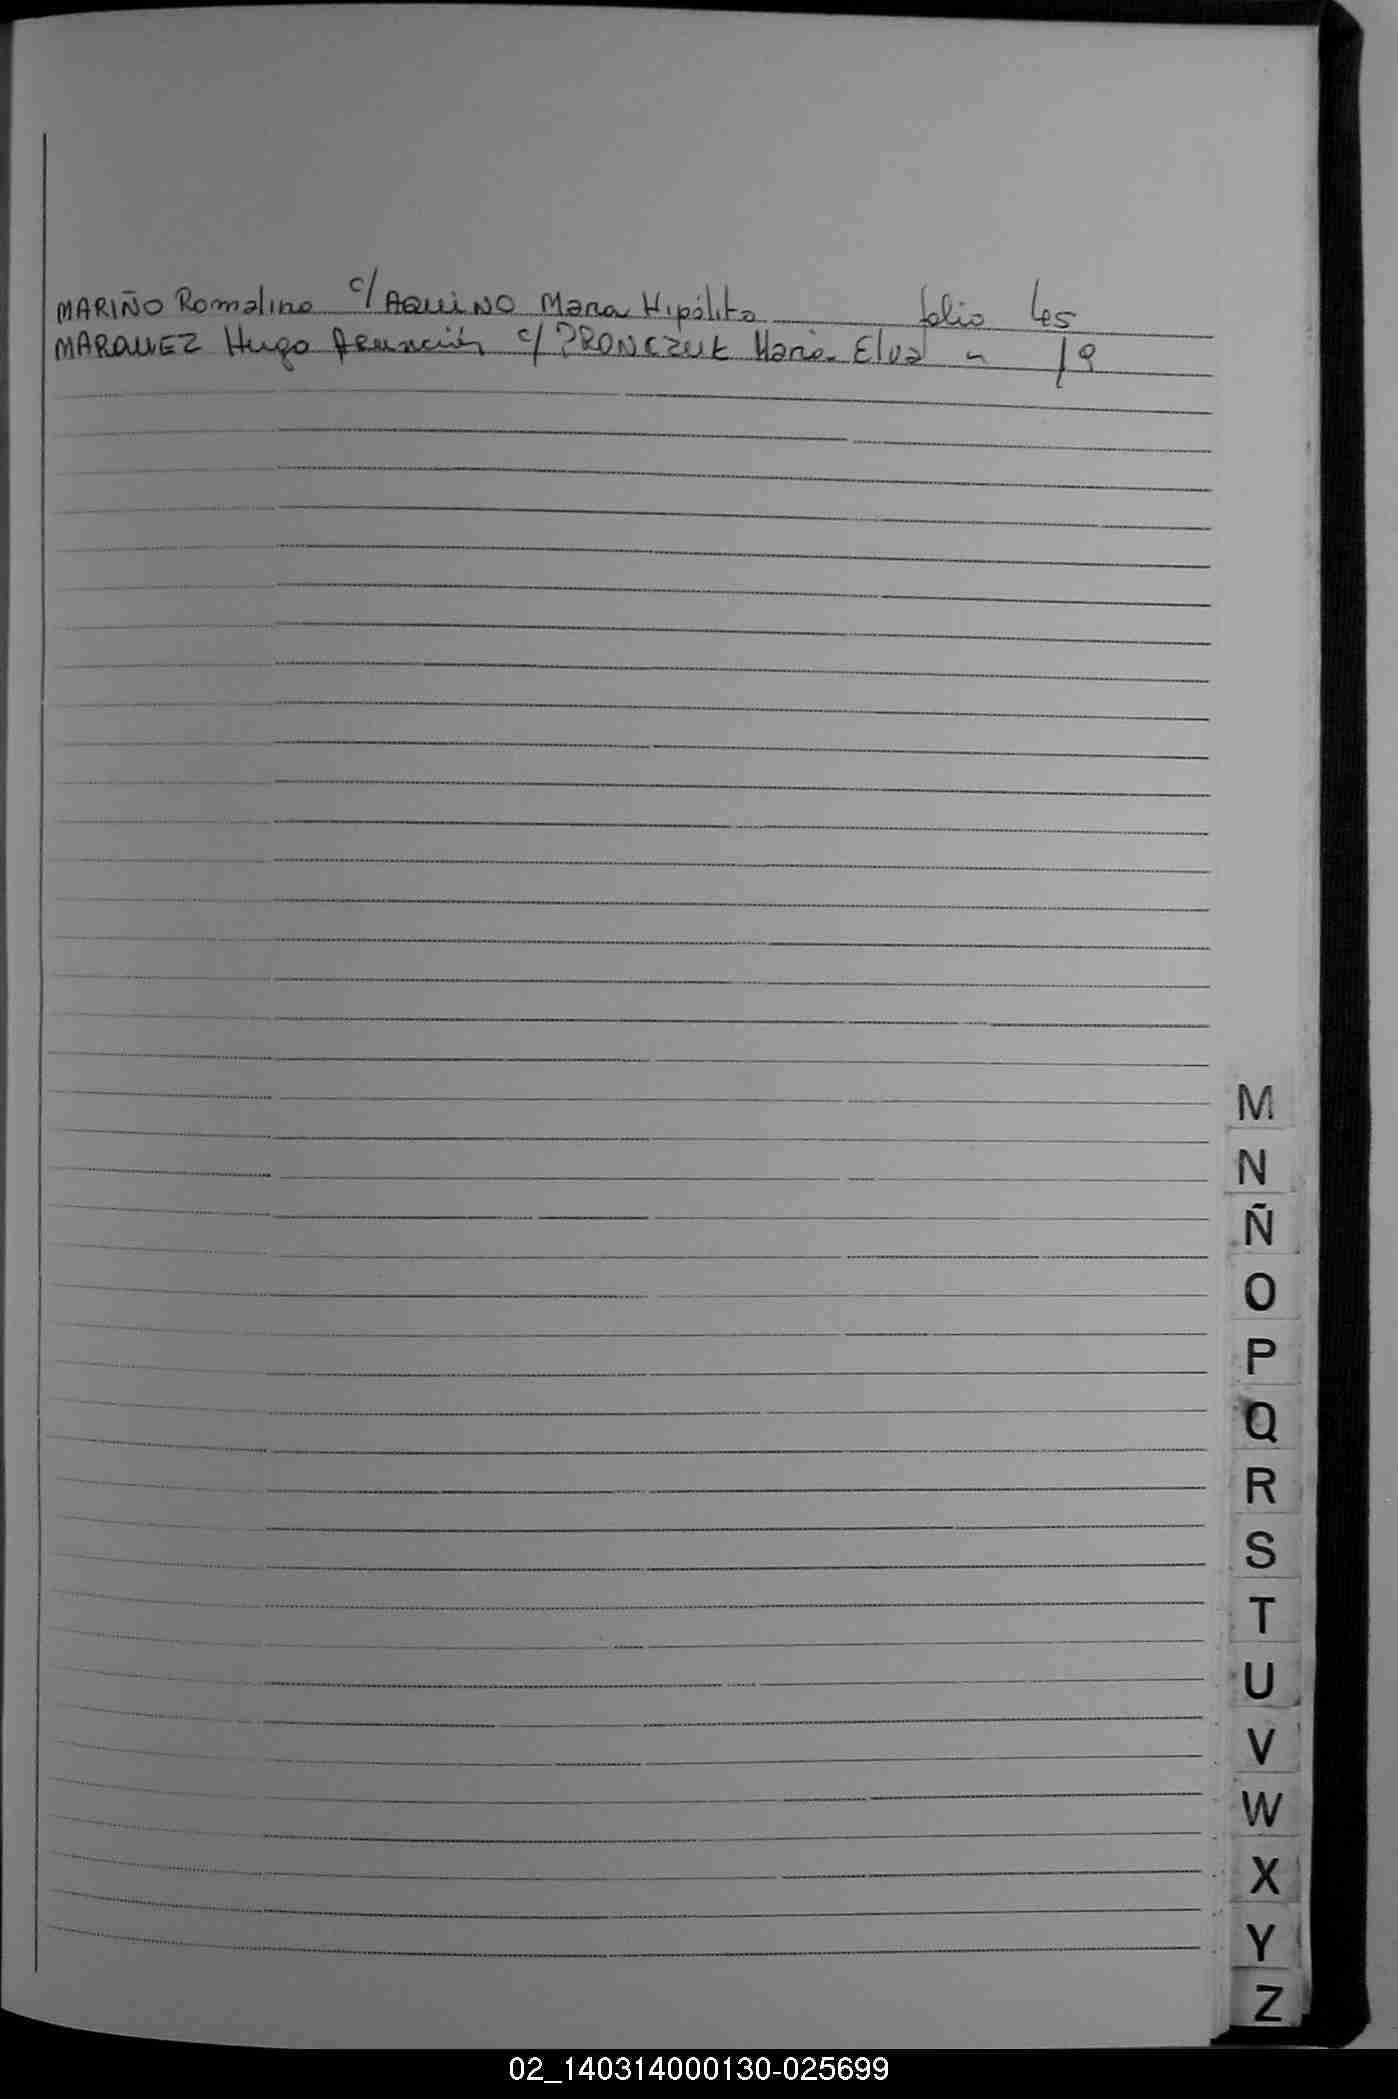 MARIÑO Romalino c/ AQUINO Maria Hipólita folio 45
MARQUEZ Hugo Asunción c/ PRONCZUK Maria Elva " 19
M
N
Ñ
O
P
Q
R
S
T
U
V
W
X
Y
Z
02_140314000130-025699